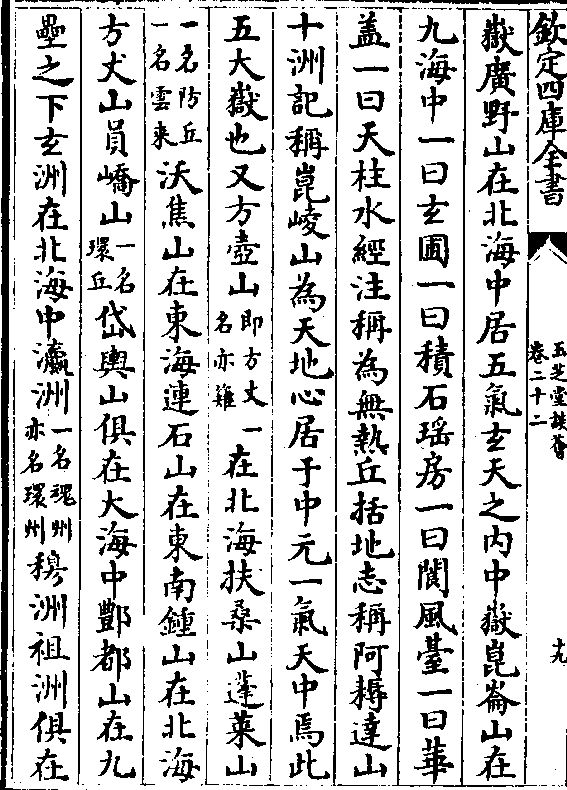 欽定四庫全書
玉芝堂談薈
卷二十二
十九
嶽廣野山在北海中居五氣玄天之内中嶽崑崙山在
九海中一曰玄圃一曰積石瑶房一曰閬風臺一曰華
盖一曰天柱水經注稱為無熱丘括地志稱阿耨達山
十洲記稱崑崚山為天地心居于中元一氣天中焉此
五大嶽也又方壺山即方丈一名亦雞在北海扶桑山蓬萊山
一名防丘一名雲来沃焦山在東海連石山在東南鍾山在北海
方丈山員嶠山一名環丘岱輿山俱在大海中酆都山在九
壘之下玄洲在北海中瀛洲一名魂州亦名環州穆洲祖洲俱在